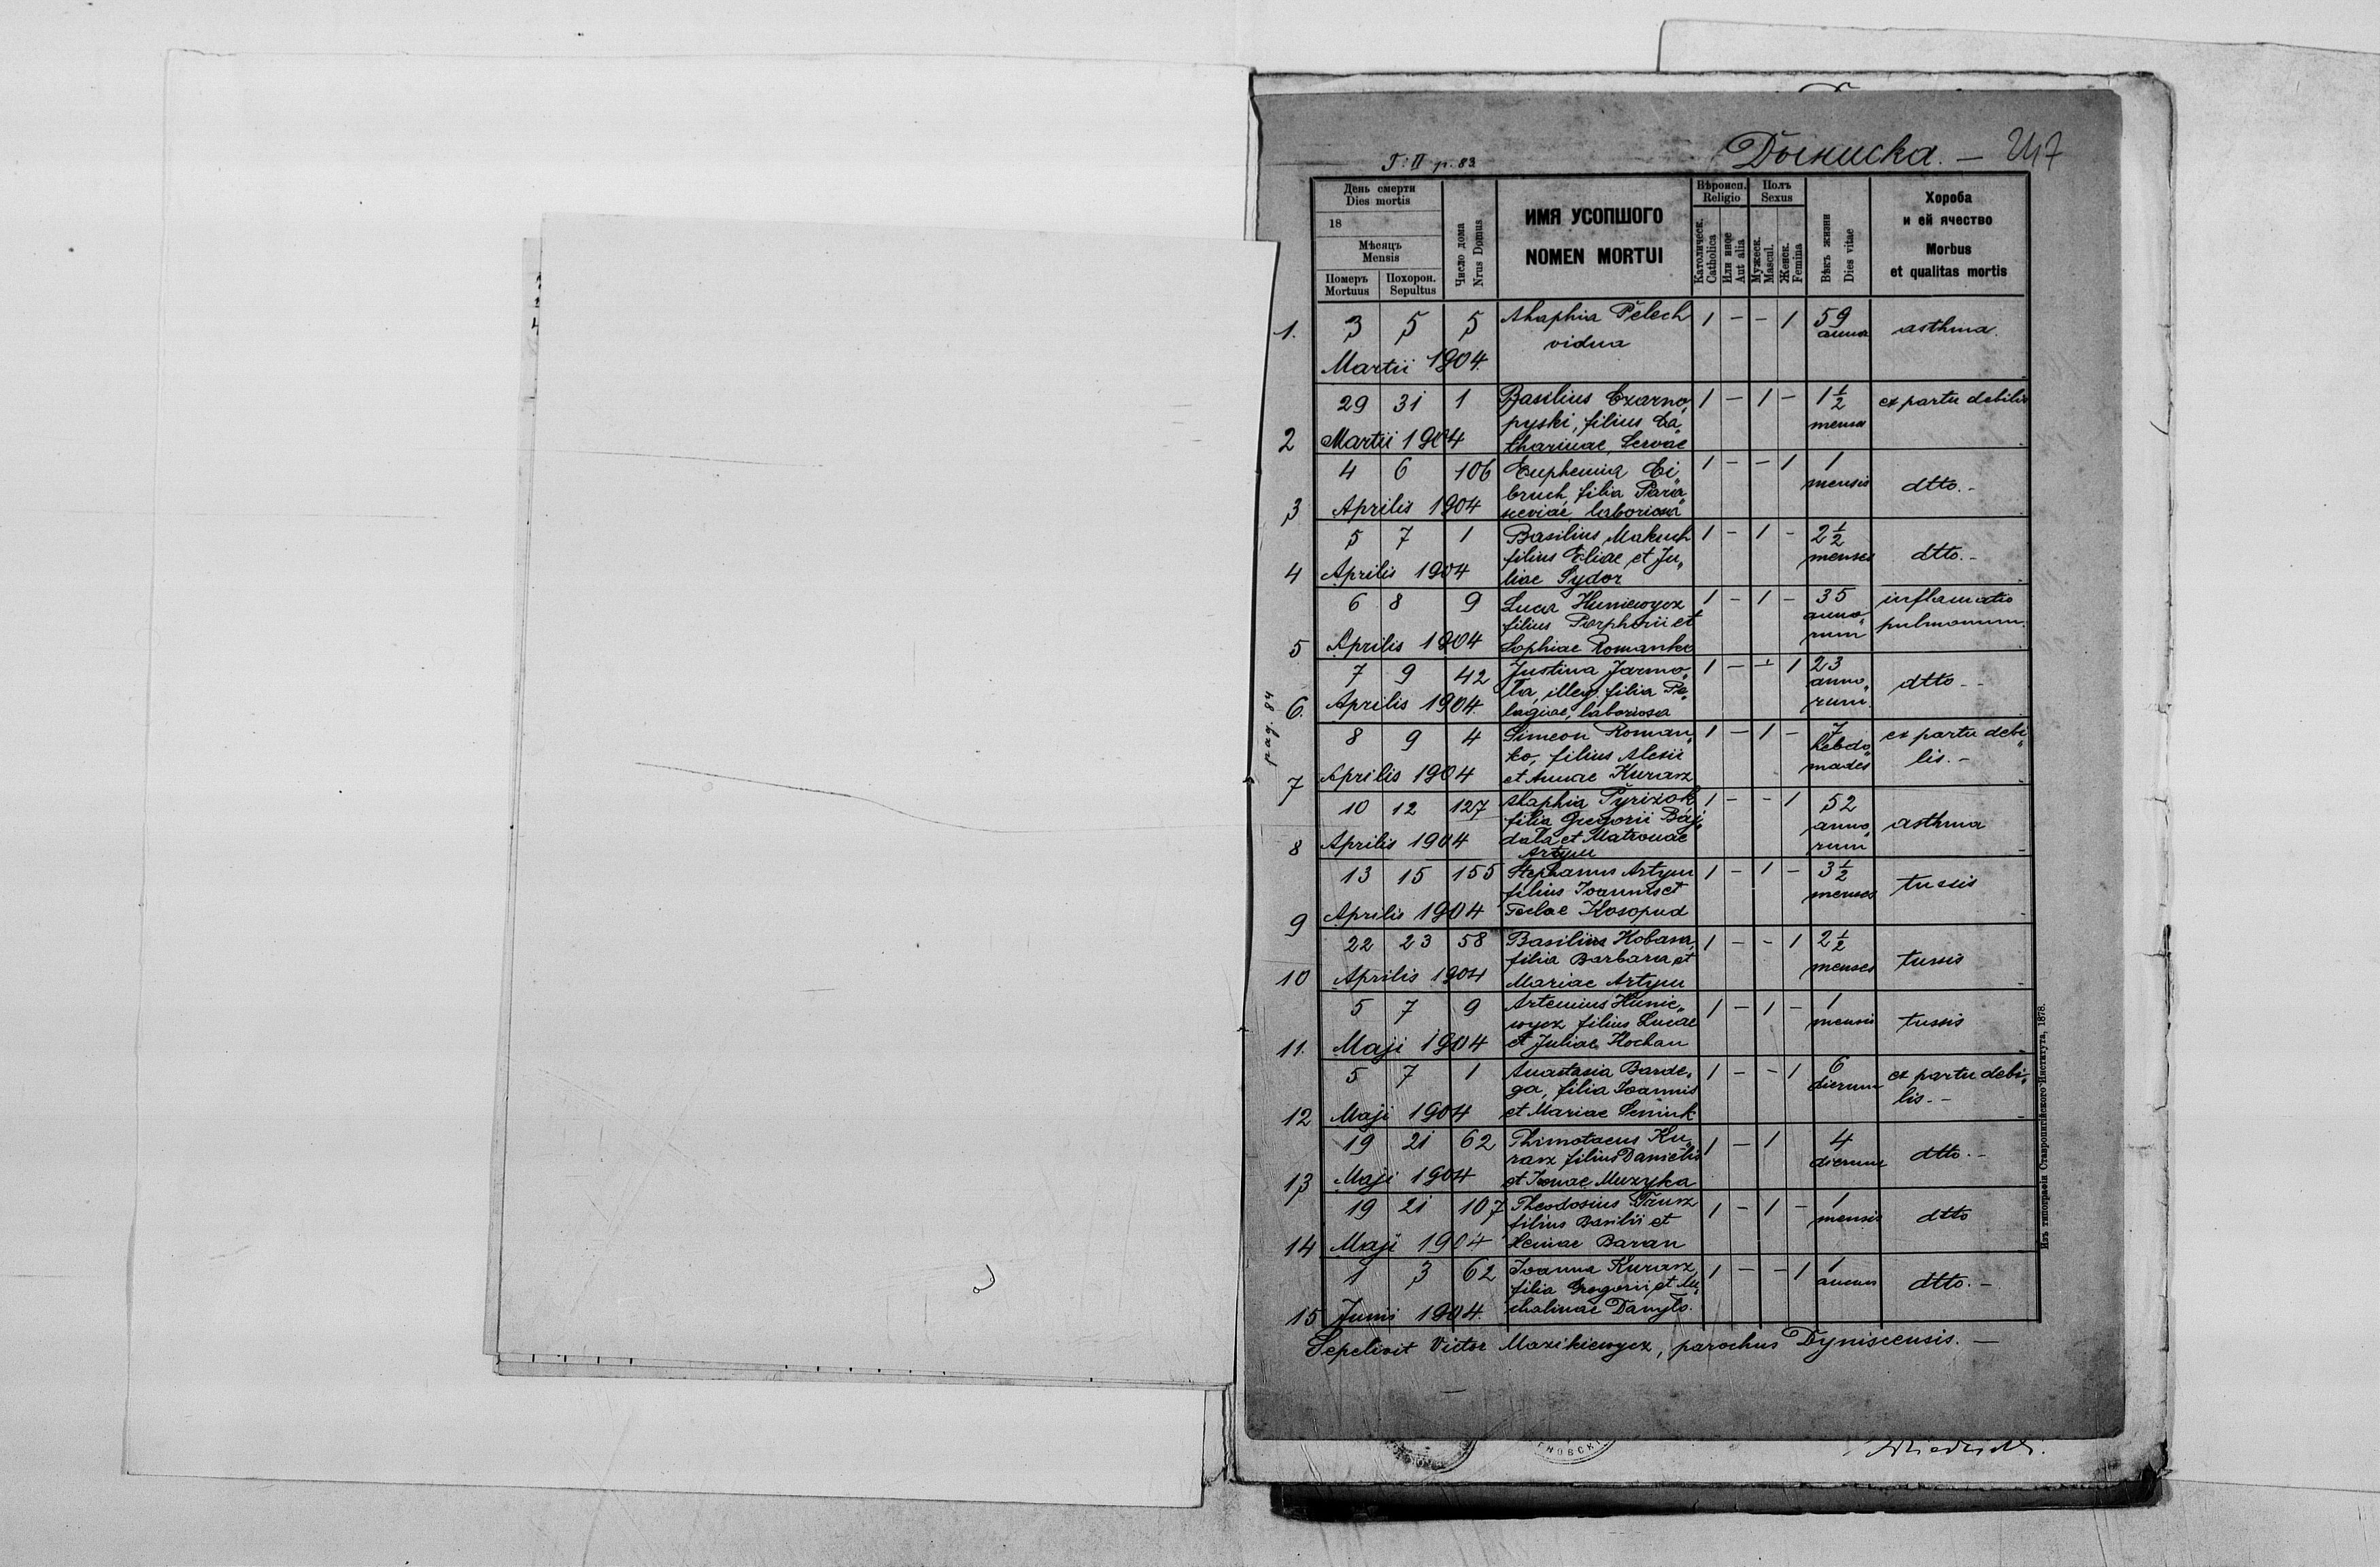 Дыниска. — 247
T: II p. 83
День смерти
Dies mortis
18
Мѣсяцъ
Mensis
Померъ
Mortuus
Похорон.
Sepultus
Число дома
Nrus Domus
ИМЯ УСОПШОГО
NOMEN MORTUI
Вѣроисп.
Religio
Католическ.
Catholica
Или иное
Aut alia
Полъ
Sexus
Мужеск.
Mascul.
Женск.
Femina
Вѣкъ жизни
Dies vitae
Хороба
и ей ячество
Morbus
et qualitas mortis
1. 3 5 5 Ahaphia Pelech 1 - - 1 59 asthma.
vidua anno
Martii 1904.
29 31 1 Basilius Czarno„ 1 - 1 - 1 1/2 ex partu debilis
pyski, filius Ca„ mensa
2 Martii 1904 tharinae, Servae
4 6 106 Euphemia Ci„ 1 - - 1 1
bruch, filia Para„ mensis dtto. -
3 Aprilis 1904 sceviae laboriosa
5 7 1 Basilius Makuch 1 - 1 - 2 1/2
filius Eliae et Ju„ menses dtto. -
4 Aprilis 1904 liae Sydor
6 8 9 Lucas Huniewycz 1 - 1 - 35 inflamatio
filius Porphirii et anno„ pulmonum.
5 Aprilis 1904 Sophiae Romanko rum
7 9 42 Justina Jarmo„ 1 - - 1 23
ła, illeg. filia Pe„ anno„ dtto -
6. Aprilis 1904. lagiae, laboriosa rum
pag. 84
8 9 4 Simeon Roman„ 1 - 1 - 7 ex partu debi„
ko, filius Alexii hebdo„ lis. -
7 Aprilis 1904 et Annae Kurasz mades
10 12 127 Ahaphia Pyrižok 1 - - 1 52
filia Gregorii Baj„ anno„ asthma
8 Aprilis 1904 dała et Matronae rum
Artym
13 15 155 Stephanus Artym 1 - 1 - 3 1/2
filius Joannis et menses tussis
9 Aprilis 1904 Teclae Kosopud
22 23 58 Basilius Hobasa, 1 - - 1 2 1/2
filia Barbara et menses tussis
10 Aprilis 1904 Mariae Artym
5 7 9 Artemius Hunie„ 1 - 1 - 1
wycz filius Lucae mensis tussis
11. Maji 1904 et Juliae Kochan
5 7 1 Anastasia Barde„ 1 - - 1 6 ex partu debi„
ga, filia Joannis dierum lis. -
12 Maji 1904 et Mariae Seniuk
19 21 62 Thimotaeus Ku„ 1 - 1 4
rasz filius Danielis dierum dtto. -
13 Maji 1904 et Irenae Muzyka
19 21 107 Theodosius Trusz 1 - 1 - 1
filius Basilii et mensis dtto
14 Maji 1904 Heniae Baran
1 3 62 Joanna Kurasz 1 - - 1 1
filia Gregorii et Mi„ annus dtto. -
15 Junii 1904. chalinae Danyło.
Sepelivit Victor Mazikiewycz, parochus Dyniscensis. —
Изъ типографіи Ставропигійского Института, 1878.